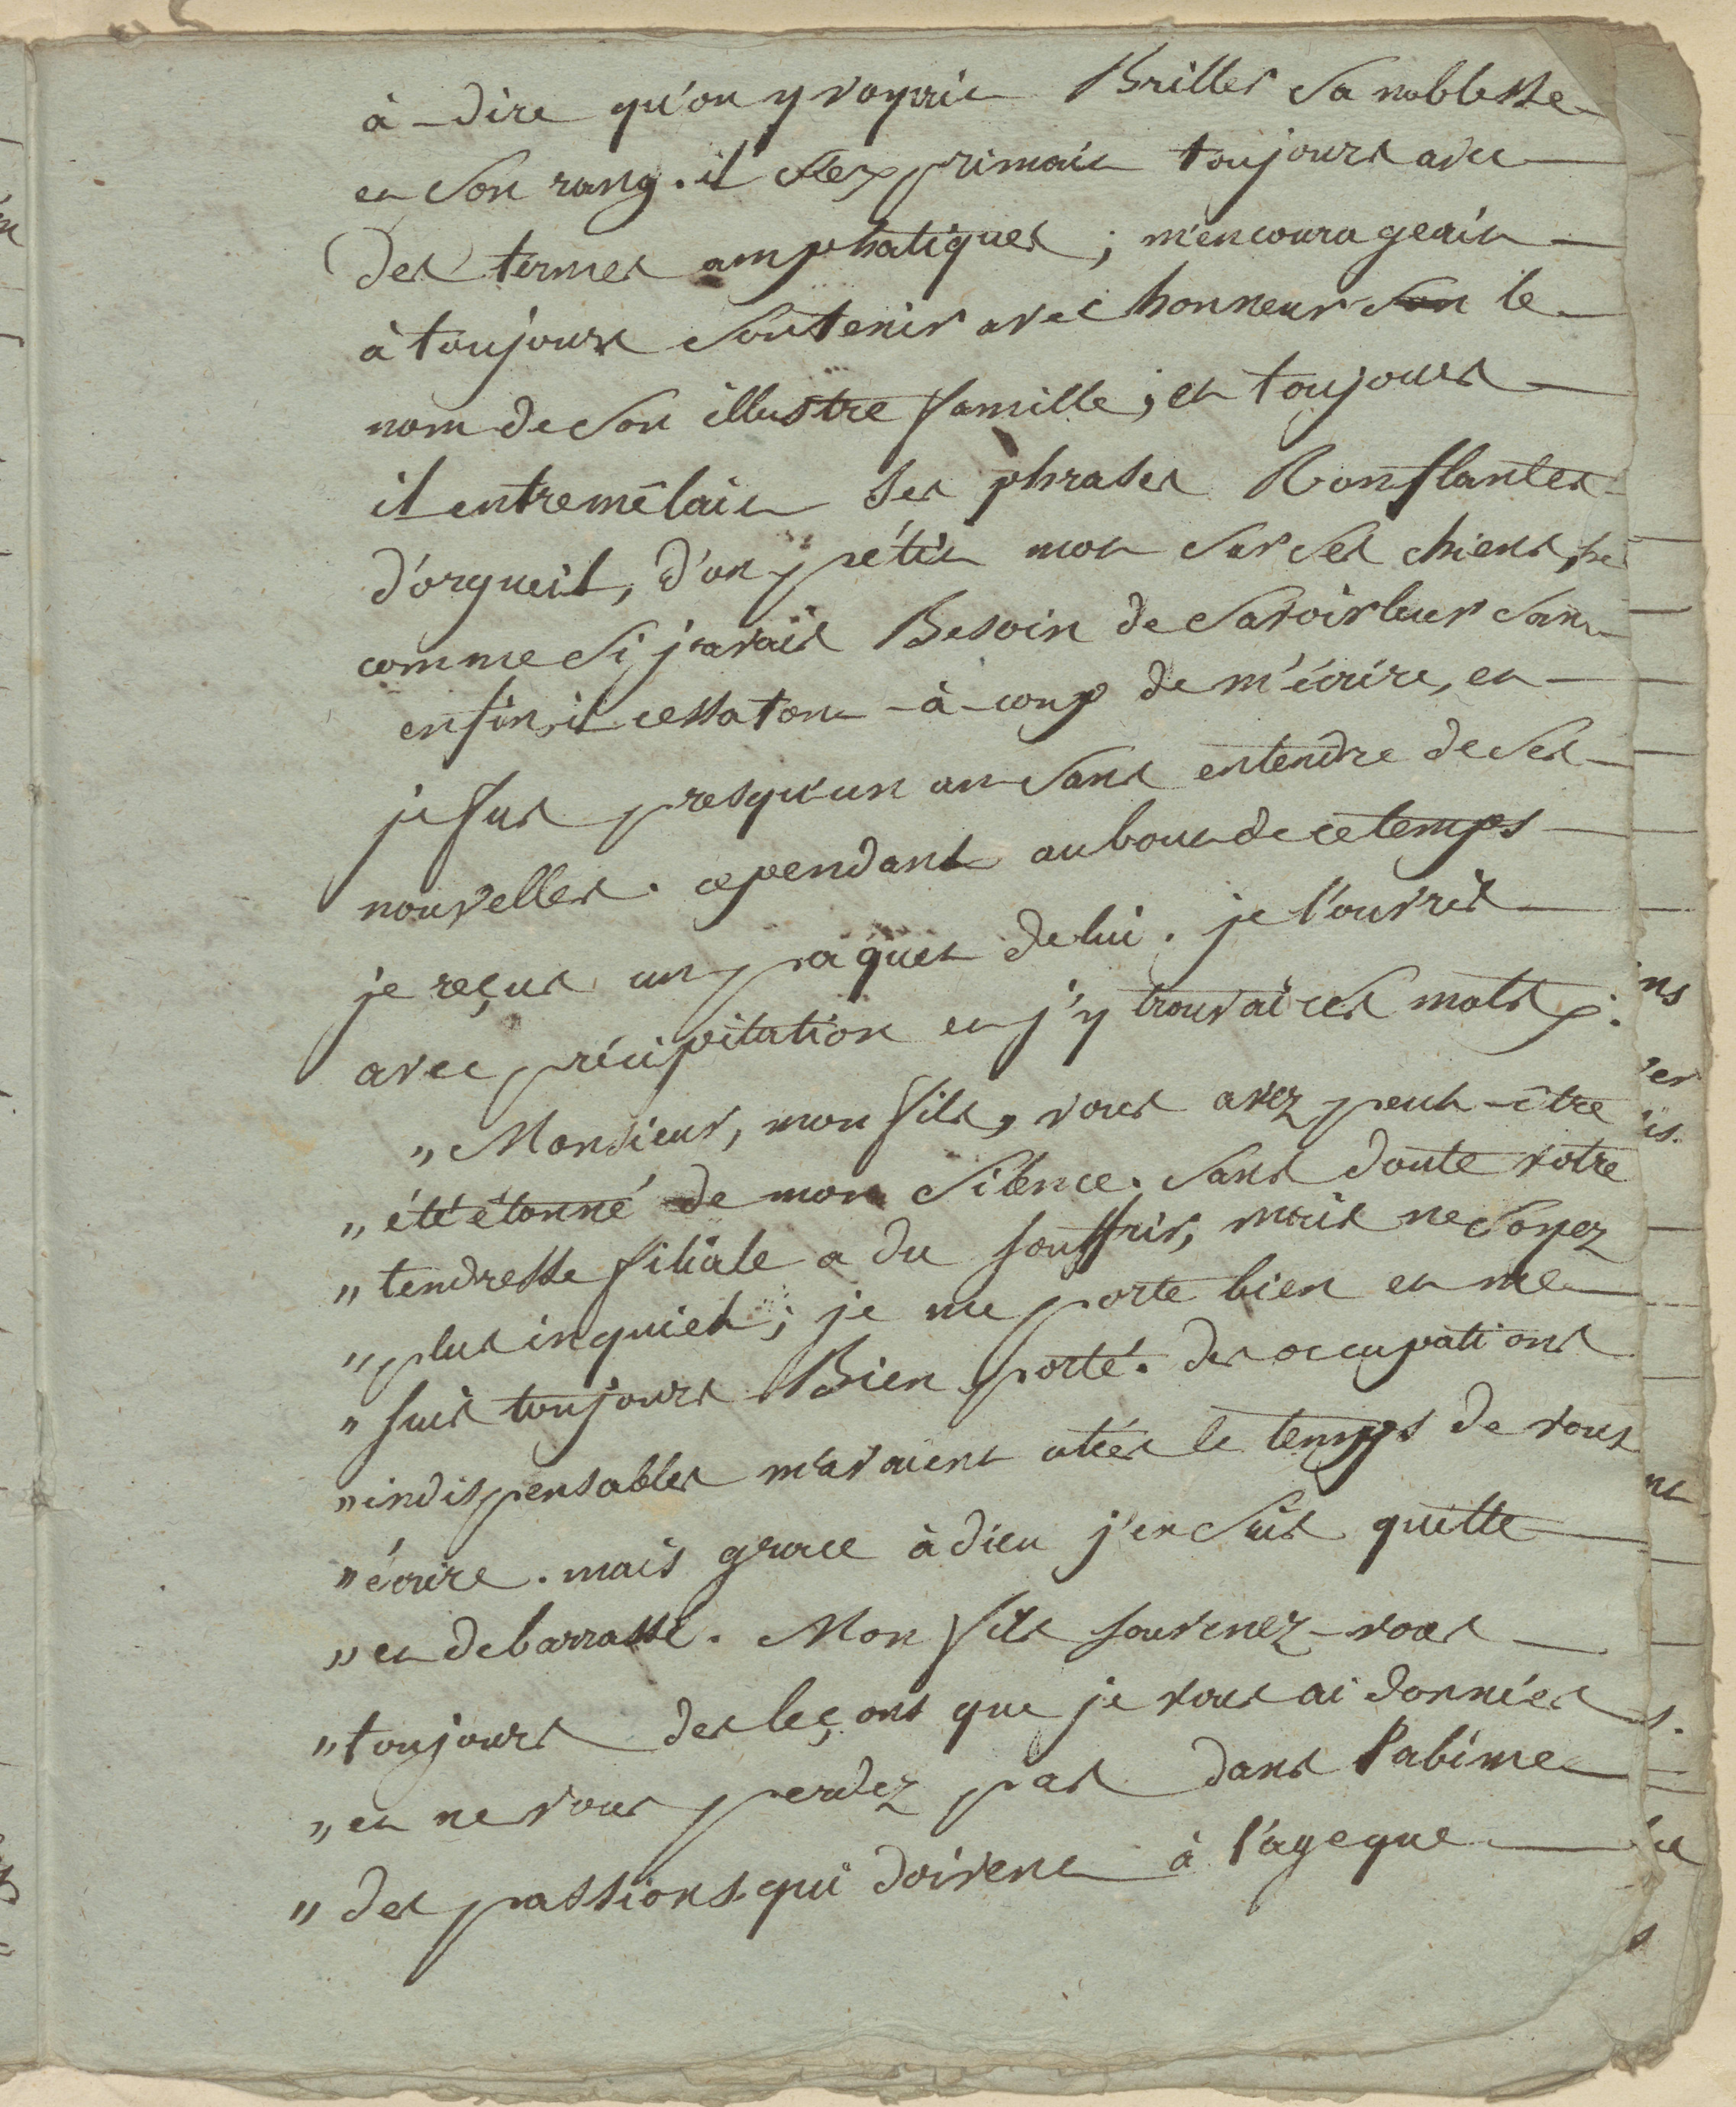 à-dire qu'on y voyait Briller sa noblesse
et son rang. il s'exprimait toujours avec
des termes amphatiques ; m'encourageait
à toujours soutenir avec honneur son le
nom de son illustre famille ; et toujours
il entremêlait ses phrases Ronflantes
d'orgueil, d'un pétit mot sur ses chiens,
comme si j'avais Besoin de savoir leur
enfin, il cessa tout-à-coup de m'écrire, et
je fus presqu'un an sans entendre de ses
nouvelles. cependant au bout de ce temps
je reçus un paquet de lui. je l'ouvris
avec précipitation et j'y trouvai ces mots :
„ Monsieur, mon fils, vous avez peut-être
„ été étonné de mon silence. sans doute votre
„ tendresse filiale a du souffrir, mais ne soyez
„ plus inquiet ; je me porte bien et me
„ suis toujours Bien porté. des occupations
„ indispensables m'avaient otées le temps de vous
„ écrire. mais grace à dieu j'en suis quitte
„ et debarrassé. Mon fils souvenez-vous
„ toujours des leçons que je vous ai données
„ et ne vous perdez pas dans l'abime
„ des passions qui doivent à l'age que